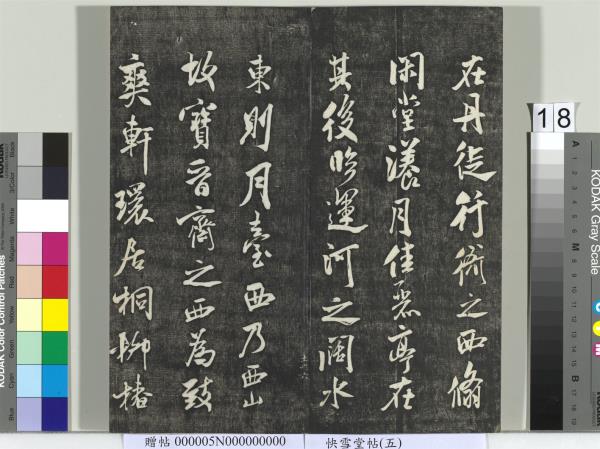 在丹徒行衙之西翛
閑堂漾月佳麗亭在
其後臨運河之闊水
東則月臺西乃西山
故寶晉齋之西為致
爽軒環居桐柳椿
18
KODAK Gray Scale
A 1 2 3 4 5 6 M 8 9 10 11 12 13 14 15 B 17 18 19
KODAK Color Control Patches
Blue Cyan Green Yellow Red Magenta White 3/Color Black
贈帖 000005N000000000 快雪堂帖(五)